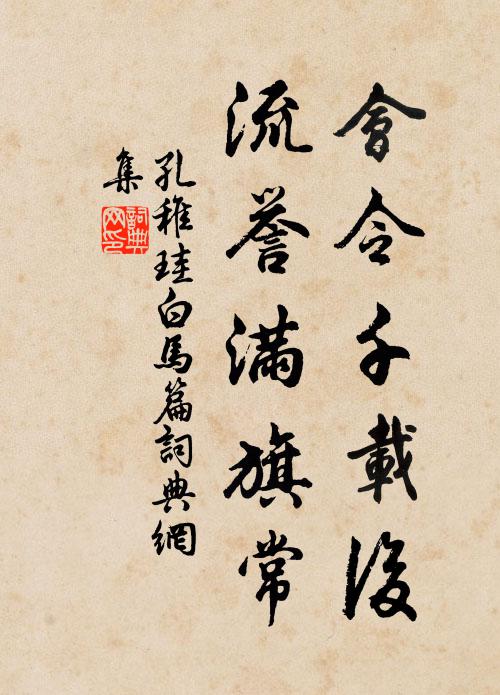 會令千載後
流譽滿旗常
孔稚珪白馬篇詞典網
集
詞典
网印